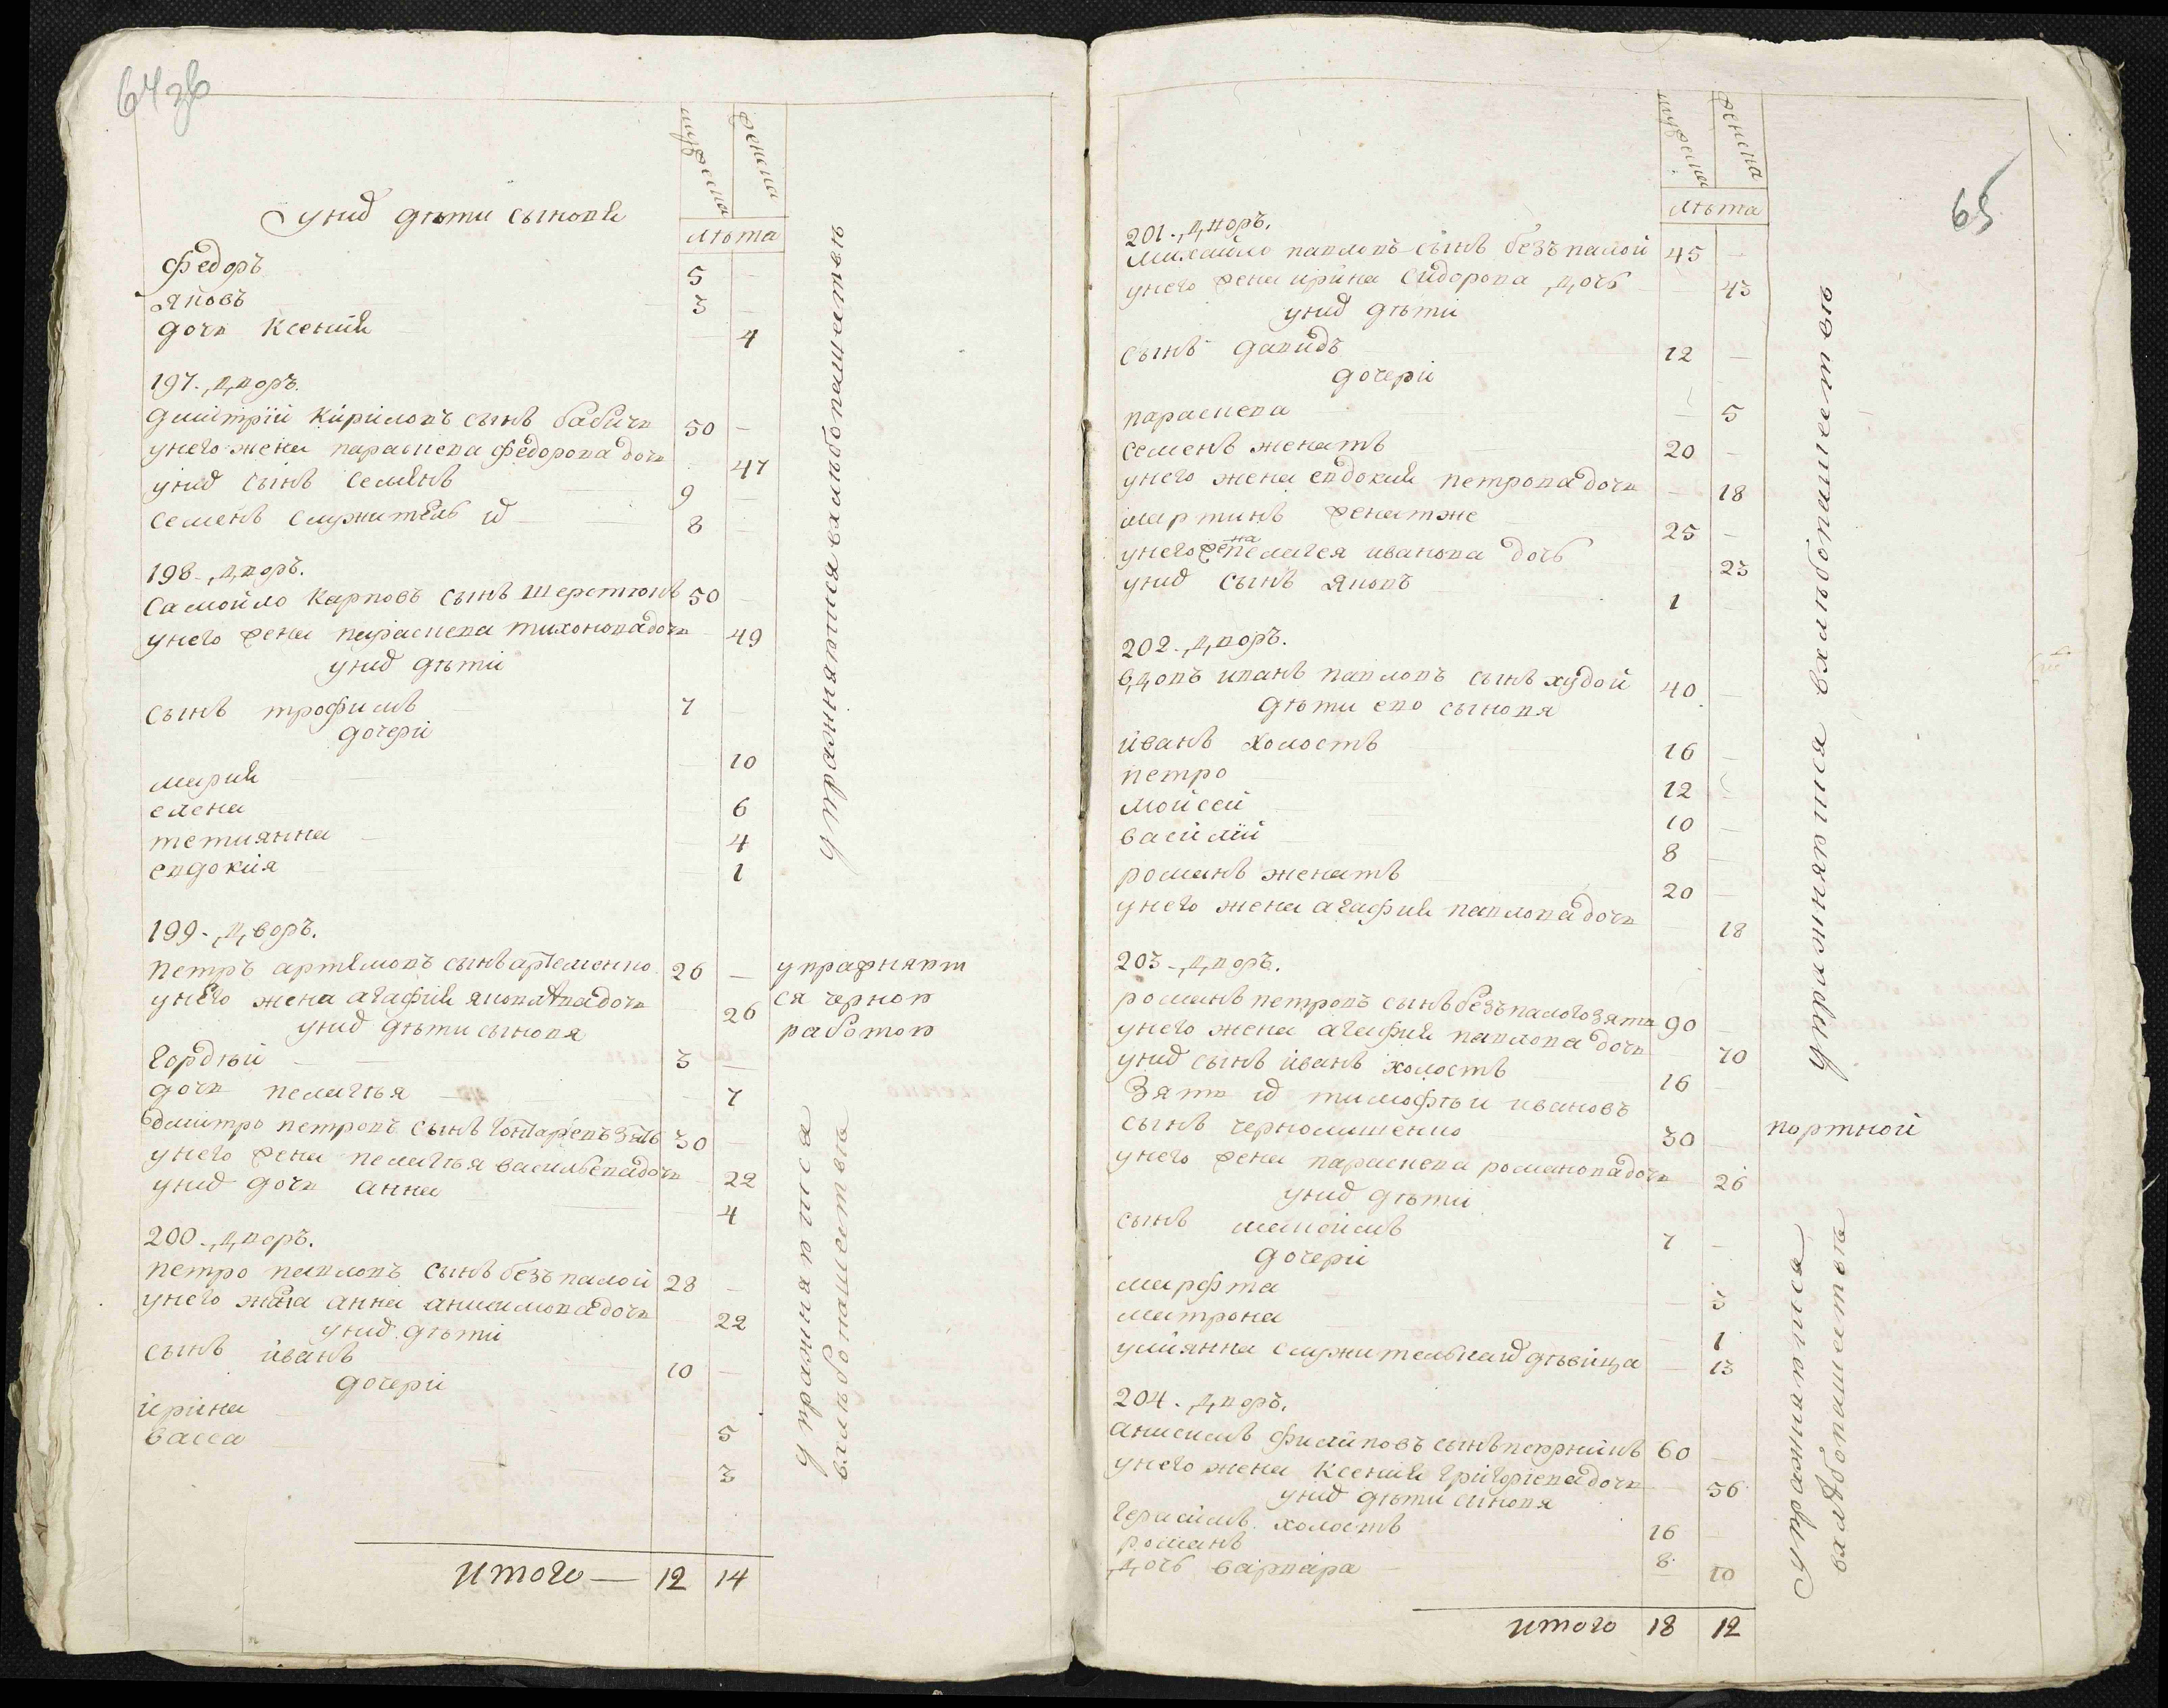 64 зв
мужеска
женска
лѣта
у них дѣти сыновя
Федоръ 5 —
яковъ 3 —
дочь Ксения — 4
197. дворъ.
дмитрий Кириловъ сынъ бабичъ 50 —
у него жена параскева федорова дочь 47
у них сынъ Семенъ 9 —
семенъ служитель их 8
198. дворъ.
Самойло Карповъ сынъ Шерстюкъ 50
у него жена параскева тихонова дочь 49
у них дѣти
сынъ трофимъ 7
дочери
мария 10
елена 6
тетиянна 4
евдокия 1
упражняются вхлѣбопашествѣ
199. дворъ.
петръ артемовъ сынъ артеменко 26 —
у него жена агафия яковлева дочь 26
у них дѣти сыновя
гордѣй 3 —
дочь пелагѣя — 7
дмитро петровъ сынъ гонтаревъ зять 30
у него жена пелагѣя васильева дочь 22
у них дочь анна 4
упражняют
ся черною
работою
200. дворъ.
петро павловъ сынъ безъпалой 28
у него жена анна анисимова дочь 22
у них дѣти
сынъ иванъ 10 —
дочери
ирина 5
васса 3
упражняются
вхлѣбопашествѣ
итого — 12 14
65
мужеска
женска
лѣта
201. дворъ.
михайло павловъ сынъ безъпалой 45 —
у него жена ирина Сидорова дочь 43
у них дѣти
сынъ давидъ 12 —
дочери
параскева — 5
семенъ женатъ 20 —
у него жена евдокия петрова дочь — 18
мартинъ женатже 25 —
у него жена пелагея иванова дочь 23
у них сынъ яковъ 1 —
202. дворъ.
вдовъ иванъ павловъ сынъ худой 40 —
дѣти ево сыновя
иванъ холостъ 16 —
петро 12
мойсей 10 —
василий 8 —
романъ женатъ 20 —
у него жена агафия павлова дочь 18
203. дворъ.
романъ петровъ сынъ безъпалого зять 90 —
у него жена агафия павлова дочь 70
у них сынъ иванъ холостъ 16 —
Зять их тимофѣи ивановъ
сынъ черномишенко 30 — портной
у него жена параскева романова дочь 26
у них дѣти
сынъ 7 —
дочери
марфта — 3
матрона — 1
улиянна служительна их дѣвица — 13
упражняются вхлѣбопашествѣ
204. дворъ.
анисимъ филиповъ сынъ 60 —
у него жена Ксения григориева дочь 56
у них дѣти сыновя
герасимъ холостъ 16 —
романъ 8
дочь варвара — 10
упражняются
вхлѣбопашествѣ
итого 18 12